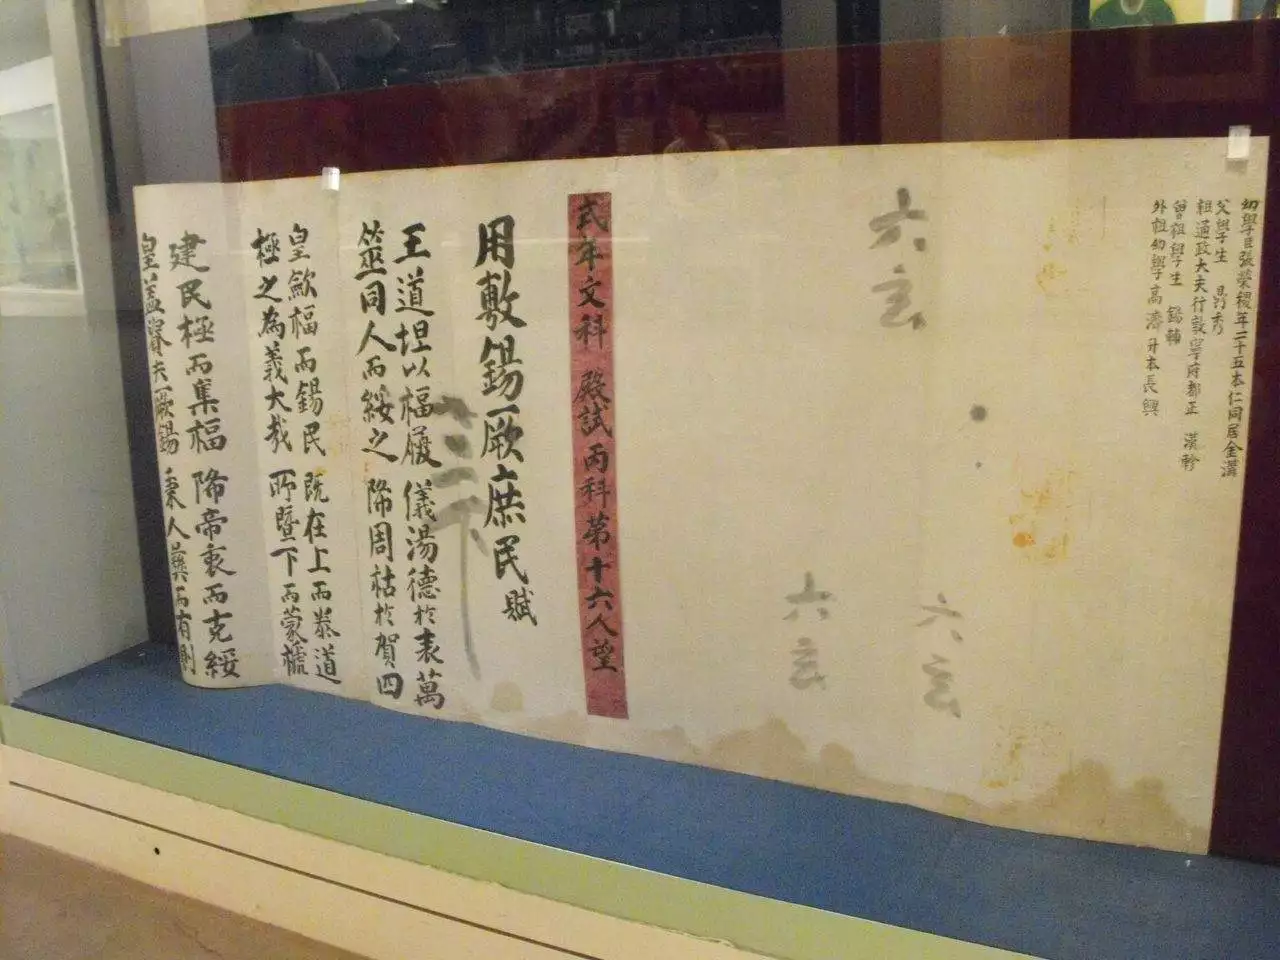 幼學臣張榮稷年二十五本仁同居金溝
父學生 昇秀
祖通政大夫行敦寧府都正 漢軫
曾祖學生 錫輔
外祖幼學高濟升本長興
六玄
六玄
六玄
式年文科 殿試丙科第十六人望
用敷錫厥庶民賦
王道坦以福履 儀湯德於表萬
筮同人而綏之 降周祜於賀四
皇歛福而錫民 既在上而泰道
極之為義大哉 所曁下而蒙
建民極而集福 降帝衷而克綏
皇蓋賚夫厥錫 秉人彛而有則